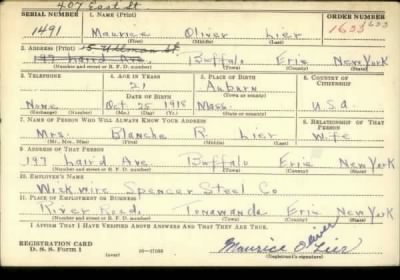 407 East St
SERIAL NUMBER 1. NAME (Print) ORDER NUMBER
1491 Maurice Oliver Lier 1633
(First) (Middle) (Last)
2. ADDRESS (Print) 15 Ullman St.
197 Laird Ave. Buffalo Erie New York
(Number and street or R. F. D. number) (Town) (County) (State)
3. TELEPHONE 4. AGE IN YEARS 5. PLACE OF BIRTH 6. COUNTRY OF CITIZENSHIP
21 Auburn
(Town or county)
None Oct 25 1918 Mass. U.S.a.
(Exchange) (Number) (Mo.) (Day) (Yr.) (State or country)
7. NAME OF PERSON WHO WILL ALWAYS KNOW YOUR ADDRESS 8. RELATIONSHIP OF THAT PERSON
Mrs. Blanche R. Lier Wife
(Mr., Mrs., Miss) (First) (Middle) (Last)
9. ADDRESS OF THAT PERSON
197 Laird Ave Buffalo Erie New York
(Number and street or R. F. D. number) (Town) (County) (State)
10. EMPLOYER'S NAME
Wickwire Spencer Steel Co
11. PLACE OF EMPLOYMENT OR BUSINESS
River Road. Tonawanda Erie New York
(Number and street or R. F. D. number) (Town) (County) (State)
I AFFIRM THAT I HAVE VERIFIED ABOVE ANSWERS AND THAT THEY ARE TRUE.
REGISTRATION CARD
D. S. S. FORM 1 (over) Maurice Oliver Lier